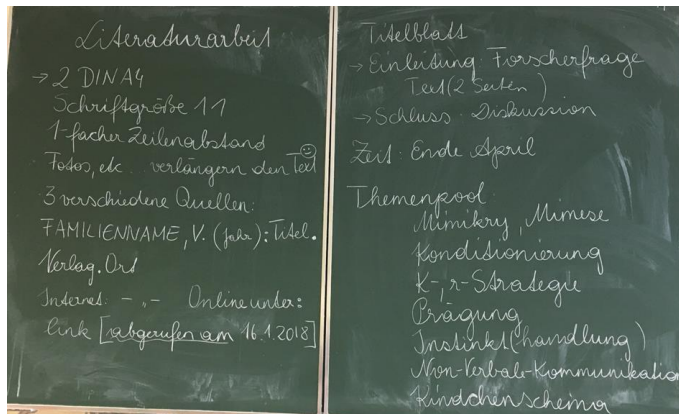 Literaturarbeit
→ 2 DINA4
Schriftgröße 11
1-facher Zeilenabstand
Fotos, etc... verlängern den Text
3 verschiedene Quellen:
FAMILIENNAME, V. (Jahr): Titel.
Verlag. Ort
Internet: - „ - Online unter:
link [abgerufen am 16.1.2018]
Titelblatt
→ Einleitung: Forscherfrage
Text (2 Seiten)
→ Schluss: Diskussion
Zeit: Ende April
Themenpool:
Mimikry, Mimese
Konditionierung
K-, r-Strategie
Prägung
Instinkt(handlung)
Non-Verbale-Kommunikation
Kindchenschema